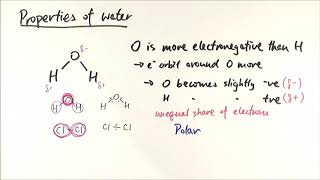 Properties of water
O δ-
H H
δ+ δ+
O is more electronegative than H
→ e⁻ orbit around O more
→ O becomes slightly -ve (δ-)
H " " +ve (δ+)
unequal share of electrons
Polar
H O H
H × O × H
Cl Cl
Cl ÷ Cl